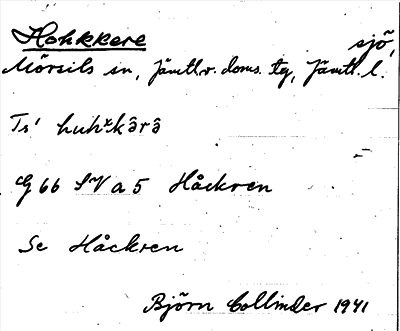 Hohkkere sjö,
Mörsils sn, Jämtl.v. doms. tg, Jämtl. l.
Ts' huhꭓkȧ̂râ
G 66 SV a 5 Håckren
Se Håckren
Björn Collinder 1941